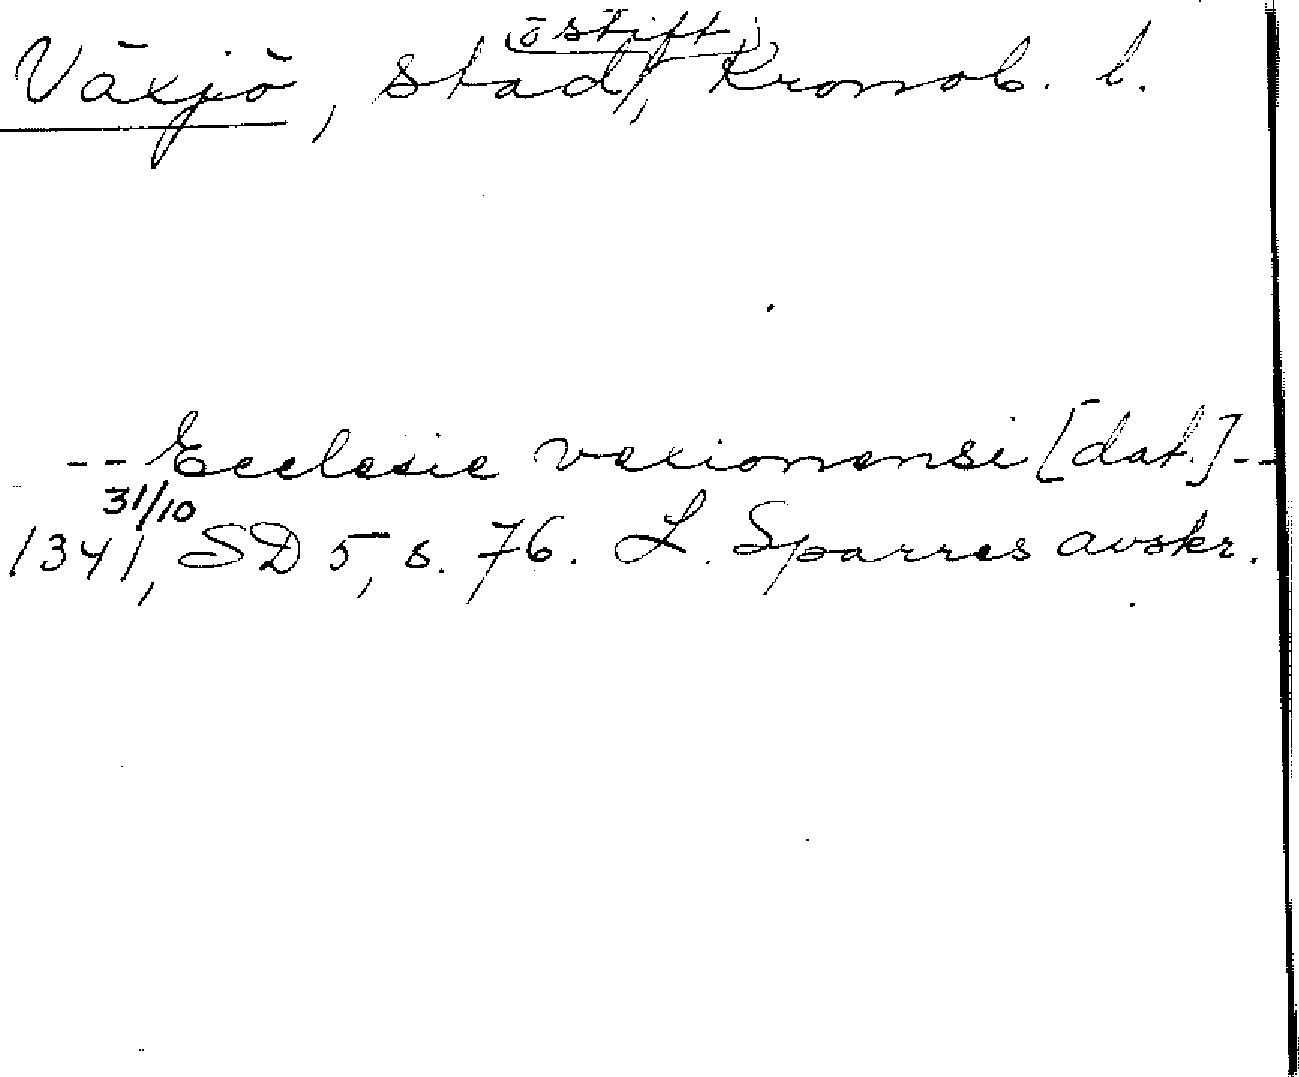 (o stift)
Växjö, stad, Kronob. l.
-- Ecclesie vexionensi [dat.] --
31/10
1341, SD 5, s. 76. L. Sparres avskr.